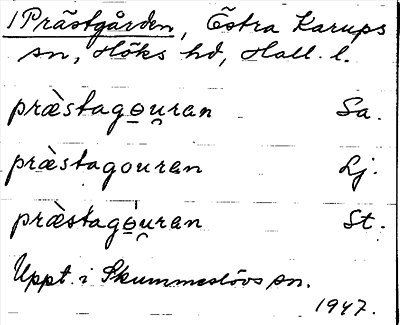 /Prästgården, Östra Karups
sn, Höks hd, Hall. l.
præ̀stago̱u̯ran Sa.
præ̀stagouran Lj.
præ̀stago̱u̯ran St.
Uppt. i Skummeslövs sn.
1947.